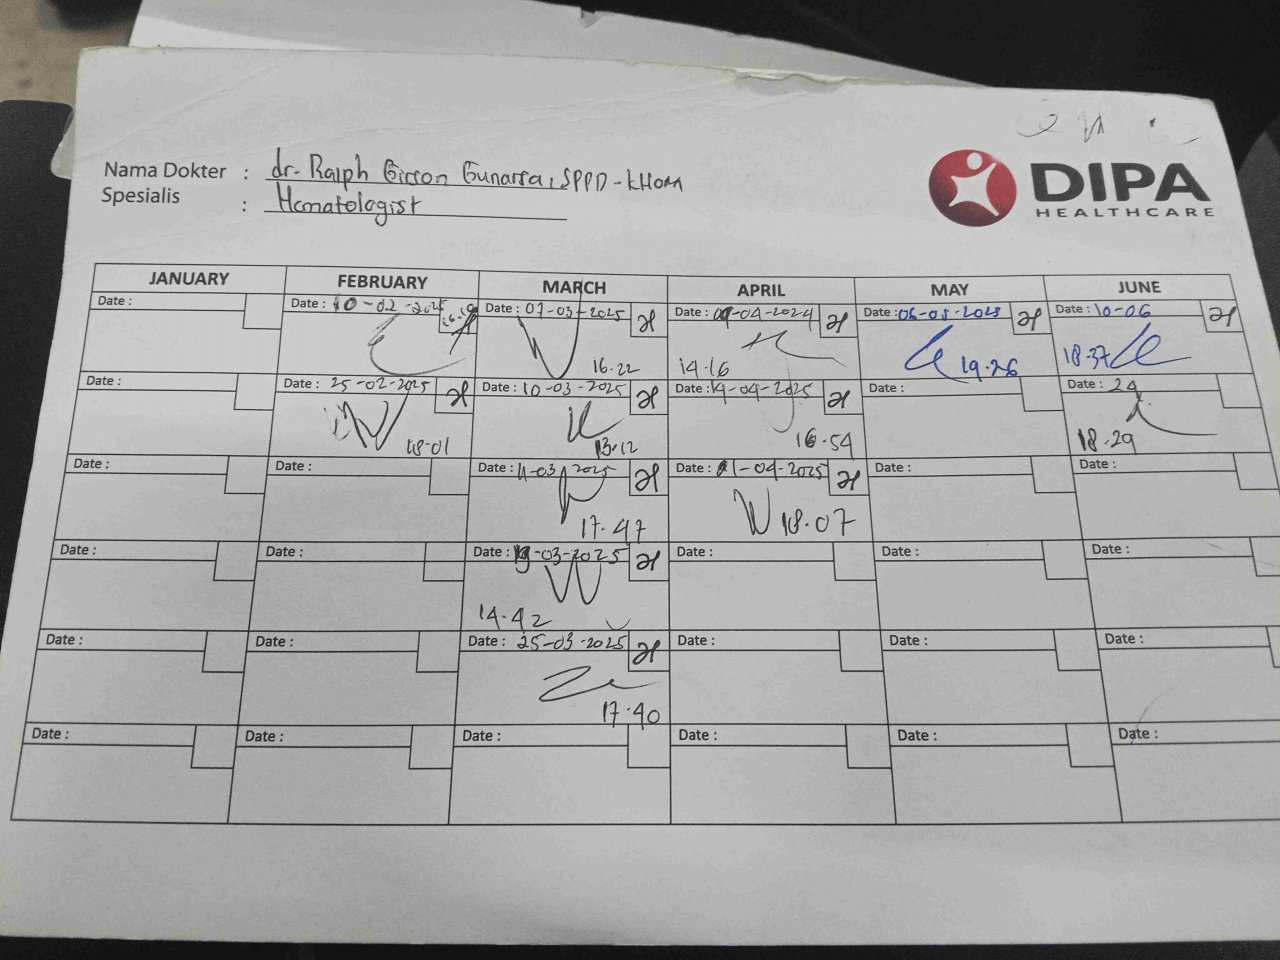 DIPA
HEALTHCARE
Nama Dokter : dr. Ralph Girson Gunarsa, SPPD - KHOM
Spesialis : Hematologist
JANUARY FEBRUARY MARCH APRIL MAY JUNE
Date : Date : 10-02-2025 Date : 07-03-2025 Date : 09-04-2024 Date : 06-05-2025 Date : 10-06
16.22 14.16 19.26 18.37
Date : Date : 25-02-2025 Date : 10-03-2025 Date : 14-04-2025 Date : Date : 24
18.01 13.12 16.54 18.29
Date : Date : Date : 11-03-2025 Date : 21-04-2025 Date : Date :
17.47 18.07
Date : Date : Date : 19-03-2025 Date : Date : Date :
14.42
Date : Date : Date : 25-03-2025 Date : Date : Date :
17.40
Date : Date : Date : Date : Date : Date :